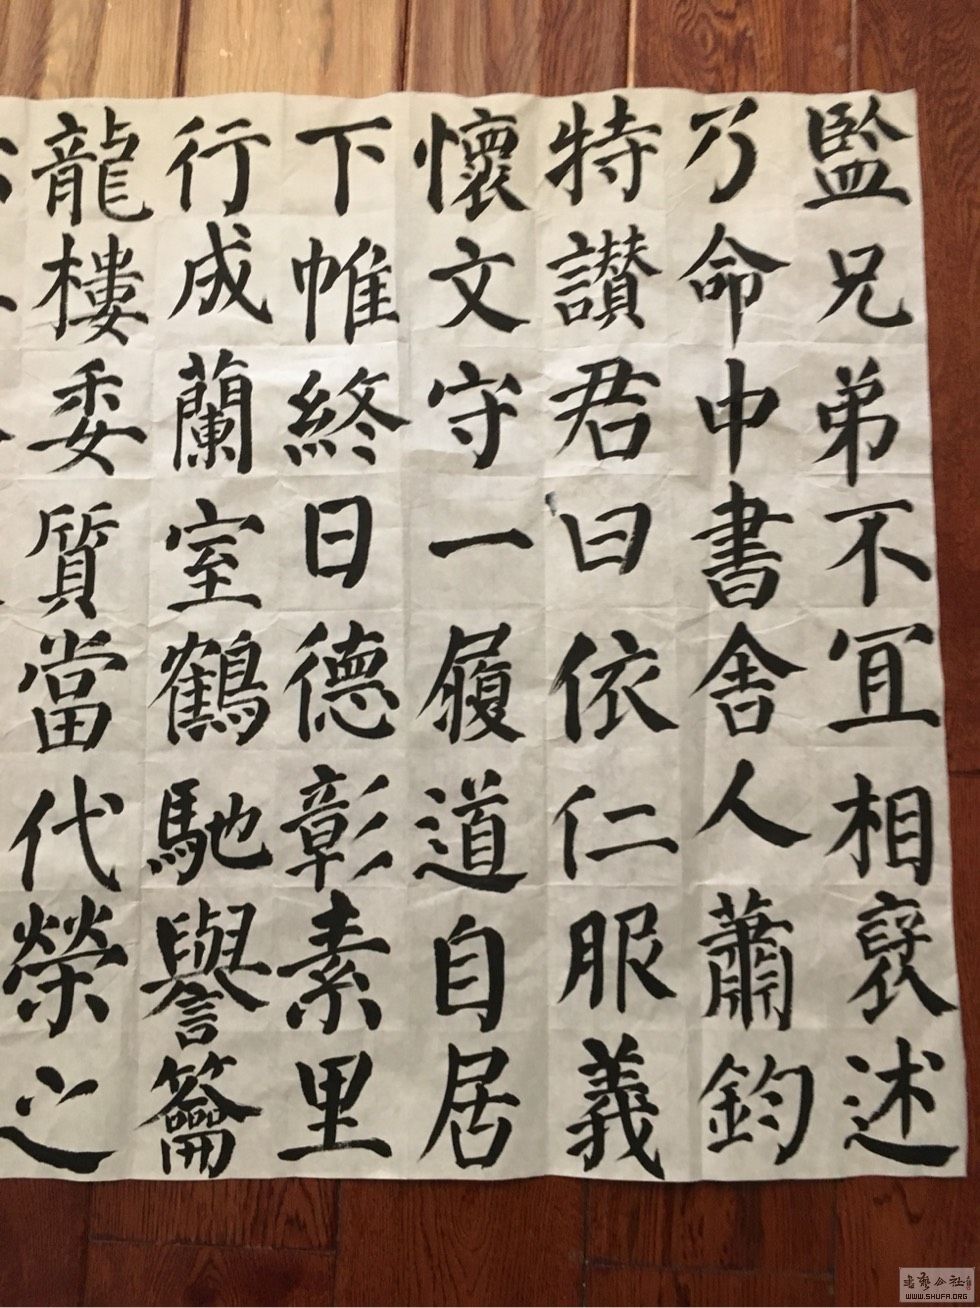 監兄弟不宜相褒述
乃命中書舍人蕭鈞
特讃君曰依仁服義
懷文守一履道自居
下帷終日德彰素里
行成蘭室鶴馳譽籥
龍樓委質當代榮之
書藝公社
WWW.SHUFA.ORG